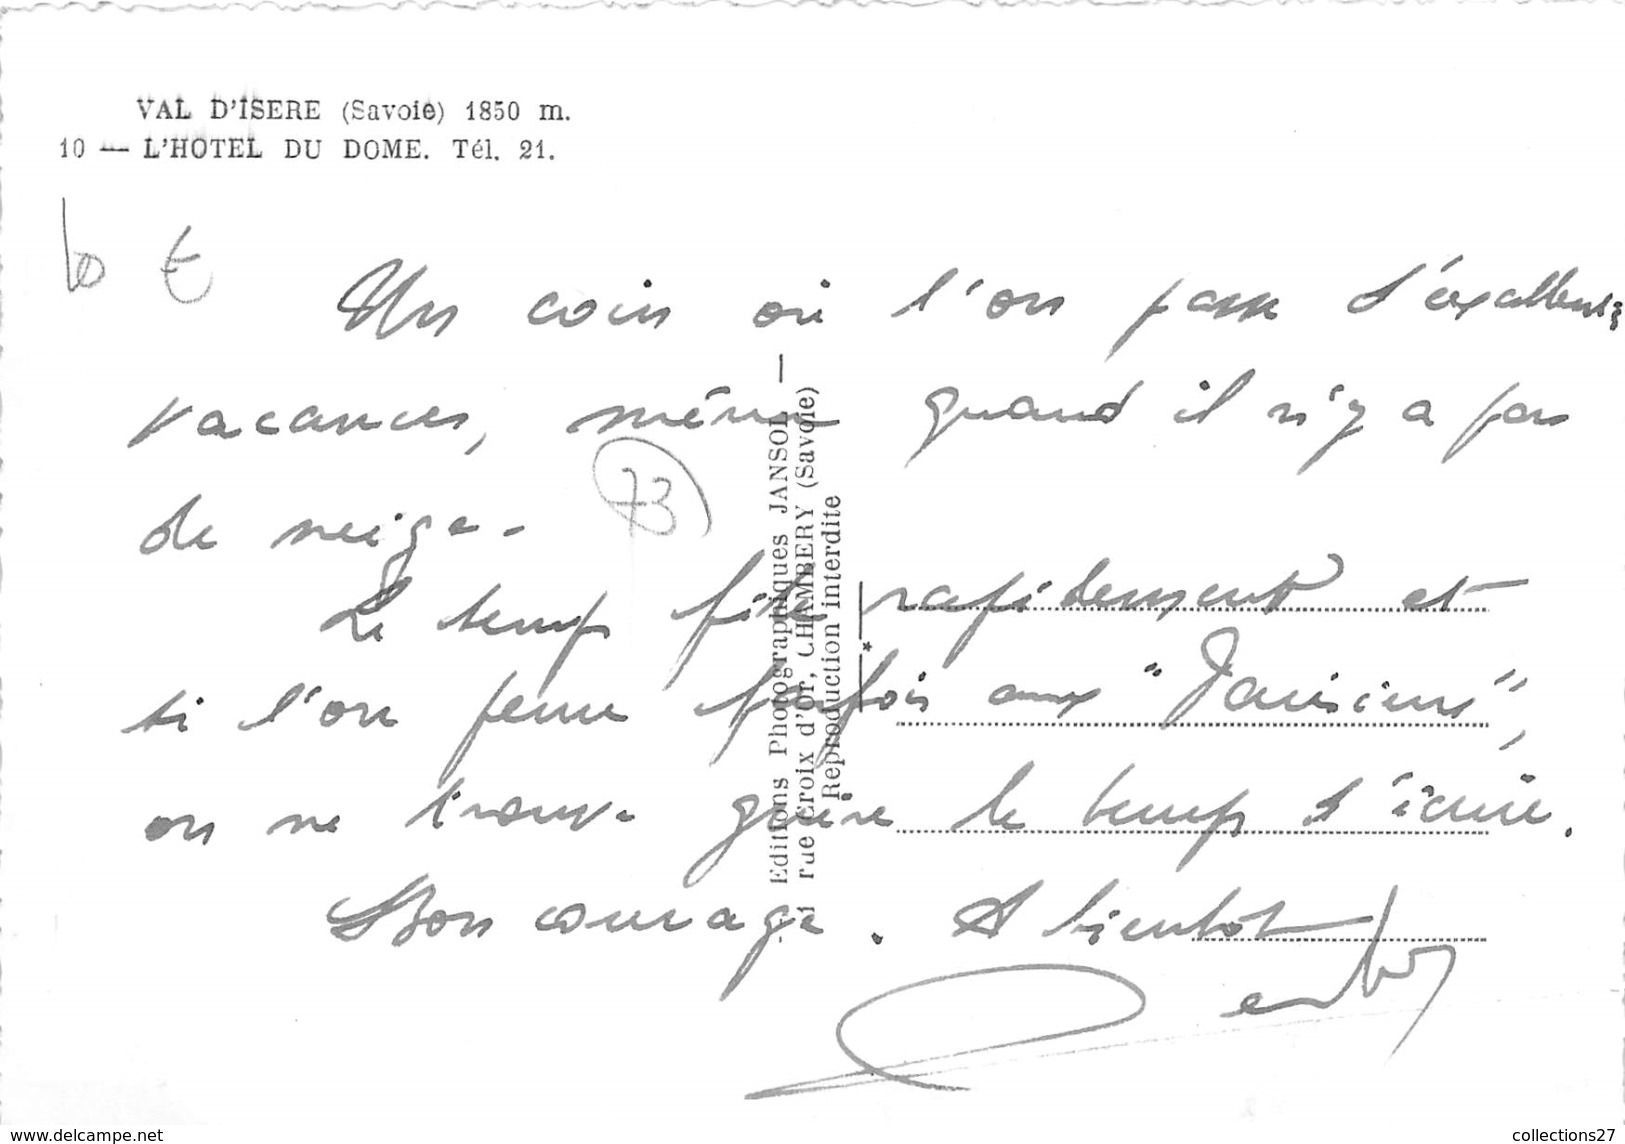 VAL D'ISERE (Savoie) 1850 m.
10 — L'HOTEL DU DOME. Tél. 21.
10 €
Un coin où l'on passe d'excellentes
vacances, même quand il n'y a pas
de neige.
73
Le temps file rapidement et
si l'on pense parfois aux "Parisiens",
on ne trouve guère le temps d'écrire.
Bon courage. A bientôt
Editions Photographiques JANSOL —
rue Croix d'or, CHAMBERY (Savoie)
Reproduction interdite
www.delcampe.net
collections27